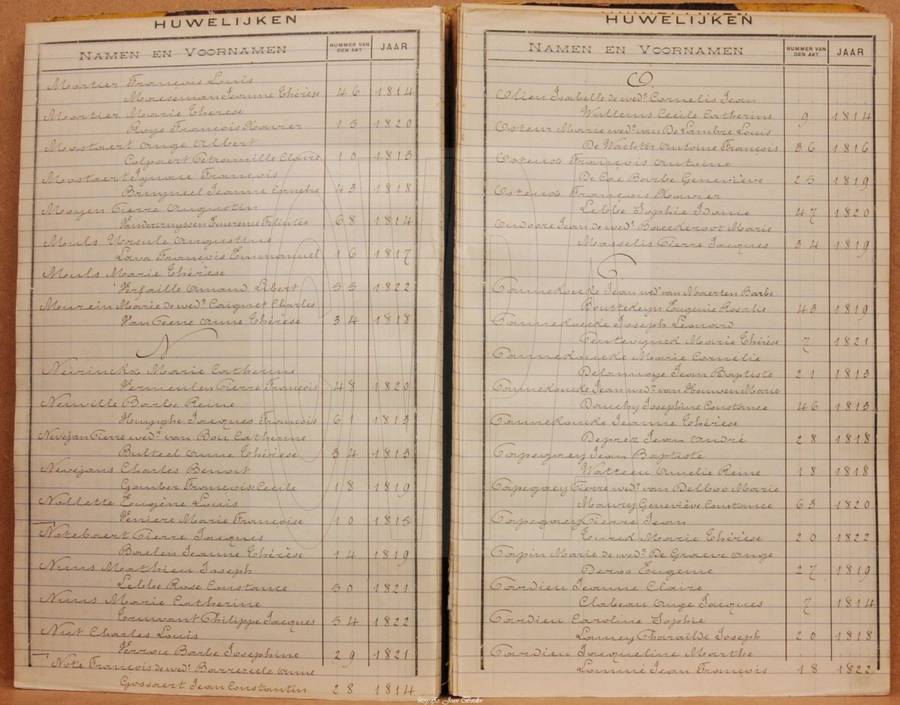 HUWELIJKEN
NAMEN EN VOORNAMEN
NUMMER VAN DEN AKT
JAAR
Mortier François Louis
Marseman Jeanne Thérèse 46 1814
Mortier Marie Therese
Roys François Xavier 15 1820
Mostaert Ange Albert
Colpaert Petronnille Claire 10 1813
Mostaert Ignace François
Bruyneel Jeanne 43 1818
Moeyen Pierre Augustin
68 1814
Mouls Ursule Augustine
Lava François Emmanuel 16 1817
Mouls Marie Thérèse
Verfaille Amand Libert 55 1822
Mourein Marie de wedr. Coignet Charles
Van Peene Anne Thérèse 34 1818
N
Neirinckx Marie Catherine
Vermeulen Pierre François 48 1820
Neuville Barbe Reine
Huyghe Jacques François 61 1813
Nevejan Pierre wedr. van Bou Catherine
Bulteel Anne Thérèse 34 1813
Nevejans Charles Benoit
Gomber François Cecile 18 1819
Nollette Eugène Louis
Veniere Marie Françoise 10 1815
Notebaert Pierre Jacques
Boulen Jeanne Thérèse 14 1819
Nuns Mathieu Joseph
Lebbe Rose Constance 50 1821
Nuns Marie Catherine
Philippe Jacques 54 1822
Nut Charles Louis
Barbe Josephine 29 1821
Note François de wedr. Anne
Gossaert Jean Constantin 28 1814
HUWELIJKEN
NAMEN EN VOORNAMEN
NUMMER VAN DEN AKT
JAAR
O
Olieu Isabelle de wedr. Cornelis Jean
Willems Cecile Catherine 9 1814
Osteur Marie wedr. van De Lambre Louis
De Wachter Antoine François 36 1816
Ostende François Antoine
De Cae Barbe Geneviève 25 1819
Ostende François Xavier
Lebbe Sophie 47 1820
Jean de wedr. Marie
Masselis Pierre Jacques 34 1819
P
Pannekoucke Jean wedr. van Maerten Barbe
Eugenie Rosalie 43 1819
Pannekoucke Joseph Leonard
Marie Thérèse 7 1821
Pannekoucke Marie Cornelie
Delannoye Jean Baptiste 21 1813
Pannekoucke Jean wedr. van Houwen Marie
Douchy Josephine Constance 46 1813
Pannekoucke Jeanne Thérèse
Deprez Jean André 28 1818
Papegaey Jean Baptiste
Watteeu Amelie Reine 18 1818
Papegaey Pierre wedr. van Delboo Marie
Maury Geneviève Constance 63 1820
Papegaey Pierre Jean
Marie Thérèse 20 1822
Papin Marie de wedr. De Graeve Ange
Deroo Eugenie 27 1819
Pardieu Jeanne Claire
Clabeau Ange Jacques 7 1814
Pardieu Caroline Sophie
Lamey Charailde Joseph 20 1818
Pardieu Jacqueline Marthe
Jean François 18 1822